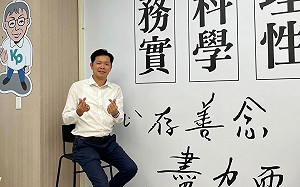 理性
科學
務實
心存善念
盡力而
KP